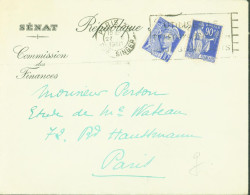 SÉNAT
République
Commission
des
Finances
90
Monsieur Person
Etude de Mc Wateau
72, Bd Haussmann
Paris